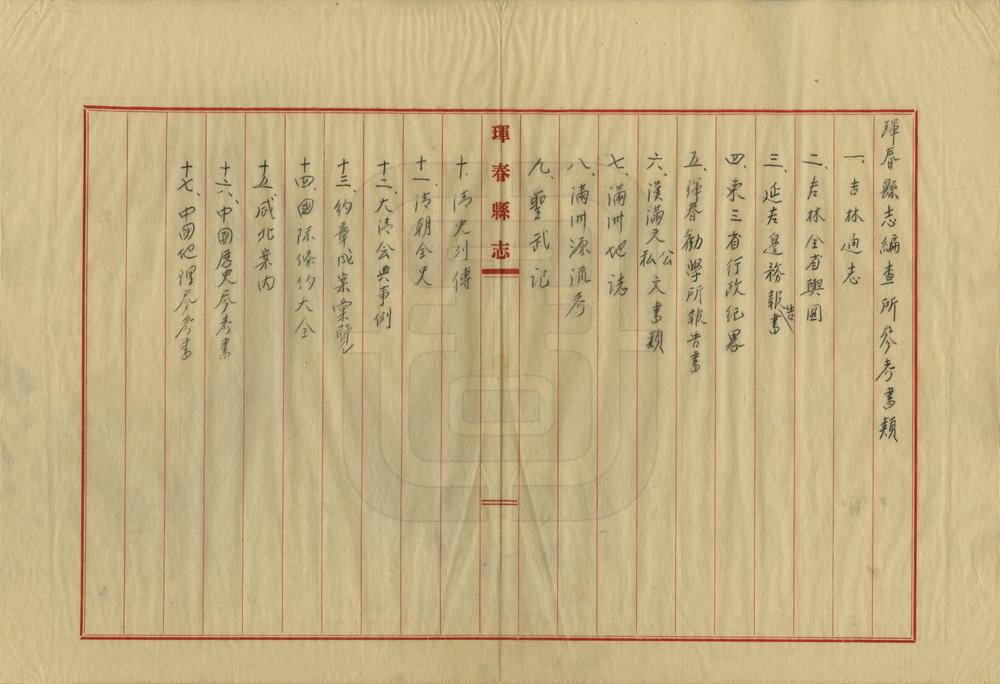 琿春縣志編查所参考書類
一、吉林通志
二、吉林全省輿圖
三、延吉邊務報告書
四、東三省行政紀畧
五、琿春勸學所報告書
六、漢滿文公私文書類
七、滿洲地誌
八、滿洲源流考
九、聖武记
琿春縣志
十、清史列傳
十一、清朝全史
十二、大清会典事例
十三、約章成案彙覽
十四、國际條約大全
十五、咸北案内
十六、中國歷史参考書
十七、中國地理参考書